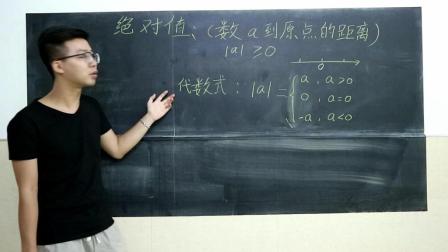 绝对值、(数a到原点的距离)
|a|≥0
0
代数式：|a|={a，a>0
0，a=0
-a，a<0